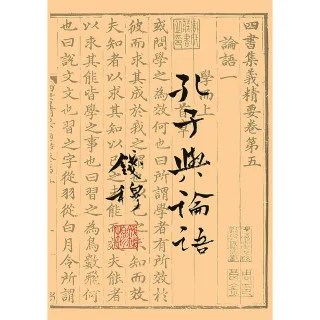 四書集義精要卷第五
論語一
學而上
孔子與論語
錢穆
或問學之為效何也曰所謂學者有所效於
彼而求其成於我之謂也以己之未知而效
夫知者以求其知以
以求其能皆學之事也曰習之為鳥數飛何
也曰說文文也習之字從羽從白月令所謂